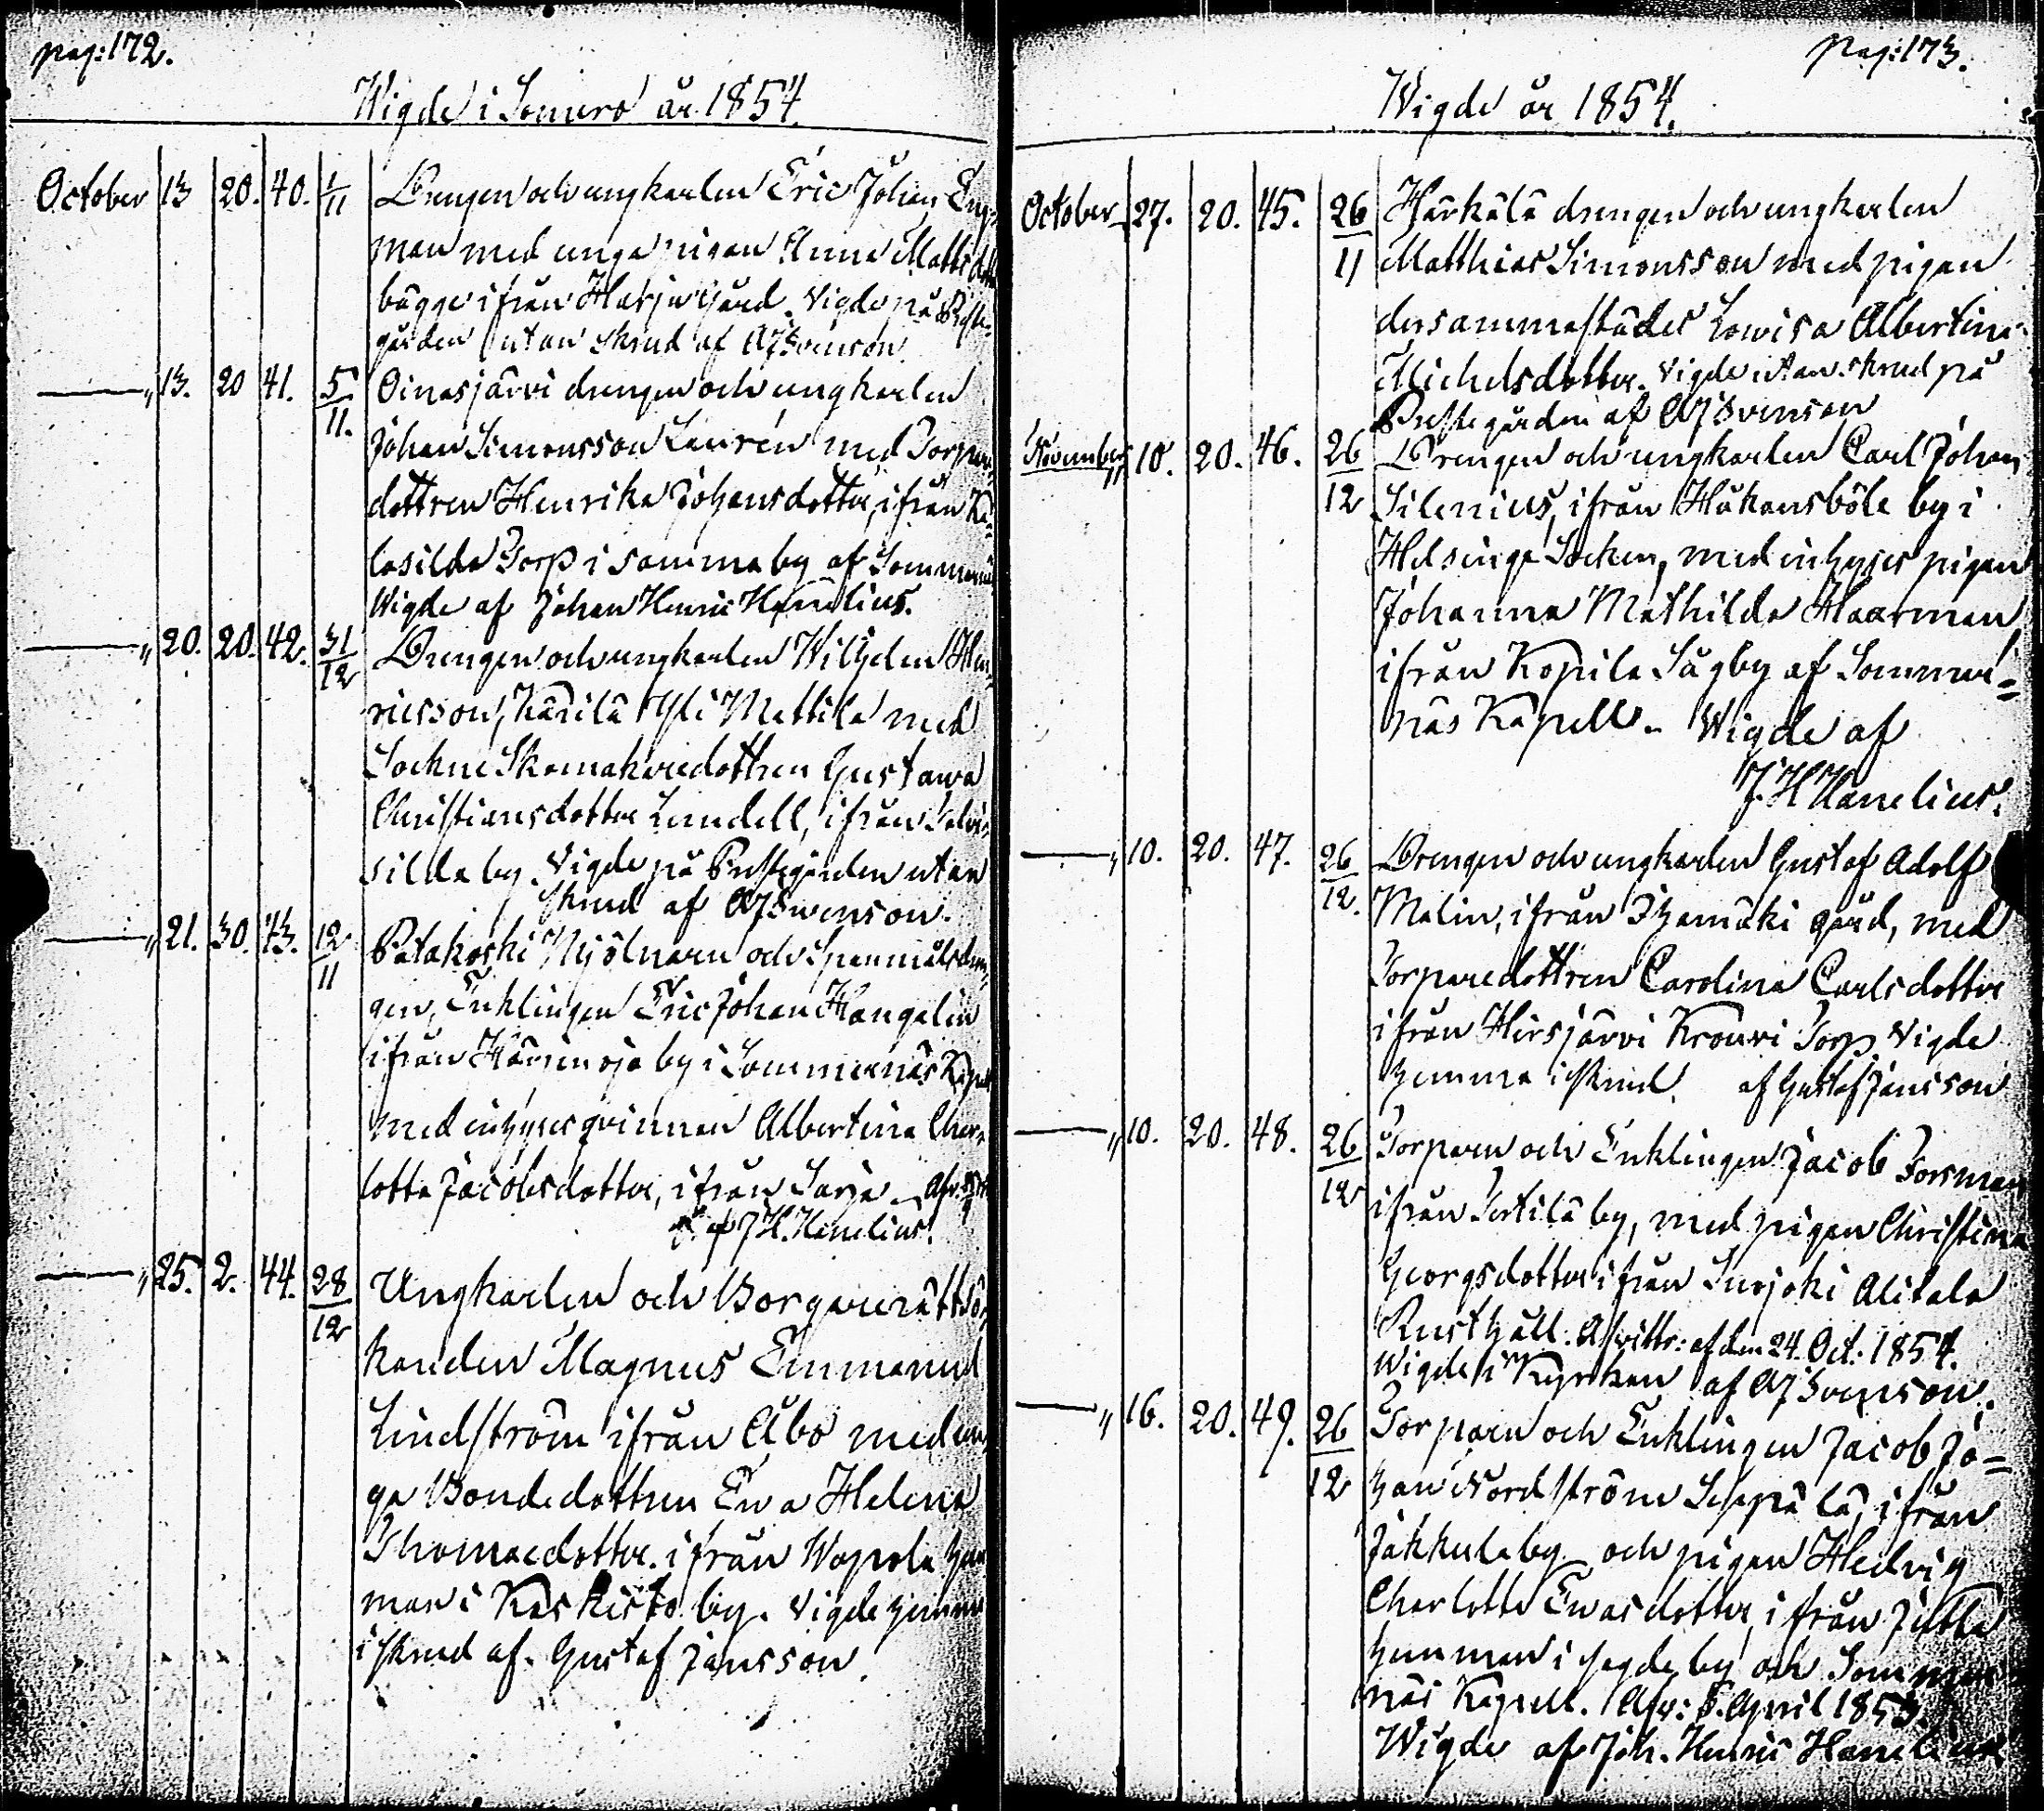 pag: 172.
Wigde i Somero år 1854.
October 13 20. 40. 1/11 Drengen och ungkarlen Eric Johan
man med unga pigan Anna Matts dotter
bägge ifrån Harju Gård. Vigde på Preste-
gården utan skrud af AJ Svenson.
—„ 13. 20 41. 5/11. Oinasjärvi drengen och ungkarlen
Johan Simonsson Laurén med Torpare
dottren Henrika Johansdotter, ifrån
Torp i samma by af Sommarnäs
Wigde af Johan Henric Hanelius.
—„ 20. 20. 42. 31/12 Drengen och ungkarlen Wilhelm Hen-
ricsson, Häntälä Yli Mattila med
Sockne Skomakaredottren Gustawa
Christiansdotter Lundell, ifrån
silda by. Vigde på Prestegården utan
skrud af AJ Svenson.
—„ 21. 30. 43. 12/11 Palakoski Mjölnaren och Spanmålsdren-
gen, Enklingen Eric Johan Hangelin
ifrån by i Sommarnäs Kapell
med inhyses qvinnan Albertina Char-
lotta Jacobsdotter, ifrån
af J H. Hanelius.
—„ 25. 2. 44. 28/12 Ungkarlen och Borgarerättsö-
kanden Magnus Emmanuel
Lindström ifrån Åbo med un-
ga Bondedottren Ewa Helena
Thomaedotter. ifrån Wapola hem
man i Kaskisto by. Vigde hemma
i skrud af. Gustaf Jansson.
Pag: 173.
Wigde år 1854.
October 27. 20. 45. 26/11 Härkälä drengen och ungkarlen
Matthias Simonsson med pigan
dersammastädes Lowisa Albertina
Michelsdotter. Vigde utan skrud på
Prestegården af AJ Svenson
November „ 10. 20. 46. 26/12 Drengen och ungkarlen Carl Johan
Silenius, ifrån Håkansböle by i
Helsinge Socken, med inhyses pigan
Johanna Mathilda Haarman
ifrån Kopila Sågby af Sommar=
näs Kapell. Wigde af
J. H Hanelius.
—„ 10. 20. 47. 26/12. Drengen och ungkarlen Gustaf Adolf
Malin, ifrån Ihamäki gård, med
Torparedottren Carolina Carlsdotter
ifrån Hirsjärvi Krouvi Torp Vigde
hemma i skrud. af Gustaf Jansson
—„ 10. 20. 48. 26/12 Torparen och Enklingen Jacob Forsman
ifrån Terttilä by, med pigan Christina
Georgsdotter ifrån Surjoki Alitalo
Rusthåll. Afvittr: af den 24. Oct: 1854.
Wigde i Kyrkan af AJ Svenson.
—„ 16. 20. 49. 26/12 Torparen och Enklingen Jacob Jo=
han Nordström Seppälä, ifrån
Jakkula by och pigan Hedvig
Charlotta Ewasdotter, ifrån
hemman i by och Sommar
näs Kapell. Afv: 5. April 1853.
Wigde af Joh. Henric Hanelius